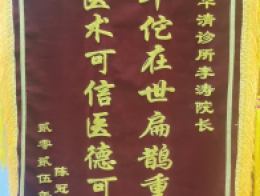 华清诊所李涛院长
华佗在世扁鹊重
医术可信医德可
陈冠
贰零贰伍年